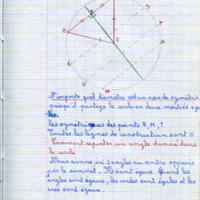 N'importe quel diamètre est un axe de symétrie
puisqu'il partage le cercle en deux moitiés
les symétriques des points R, M, S
Toutes les lignes de construction sont //
Comment reporter un angle donné dans
le cercle
Nous avons ici 2 angles au centre opposés
par le sommet. Ils sont égaux. Quand les
angles sont égaux, les cordes sont égales et les
arcs sont égaux.